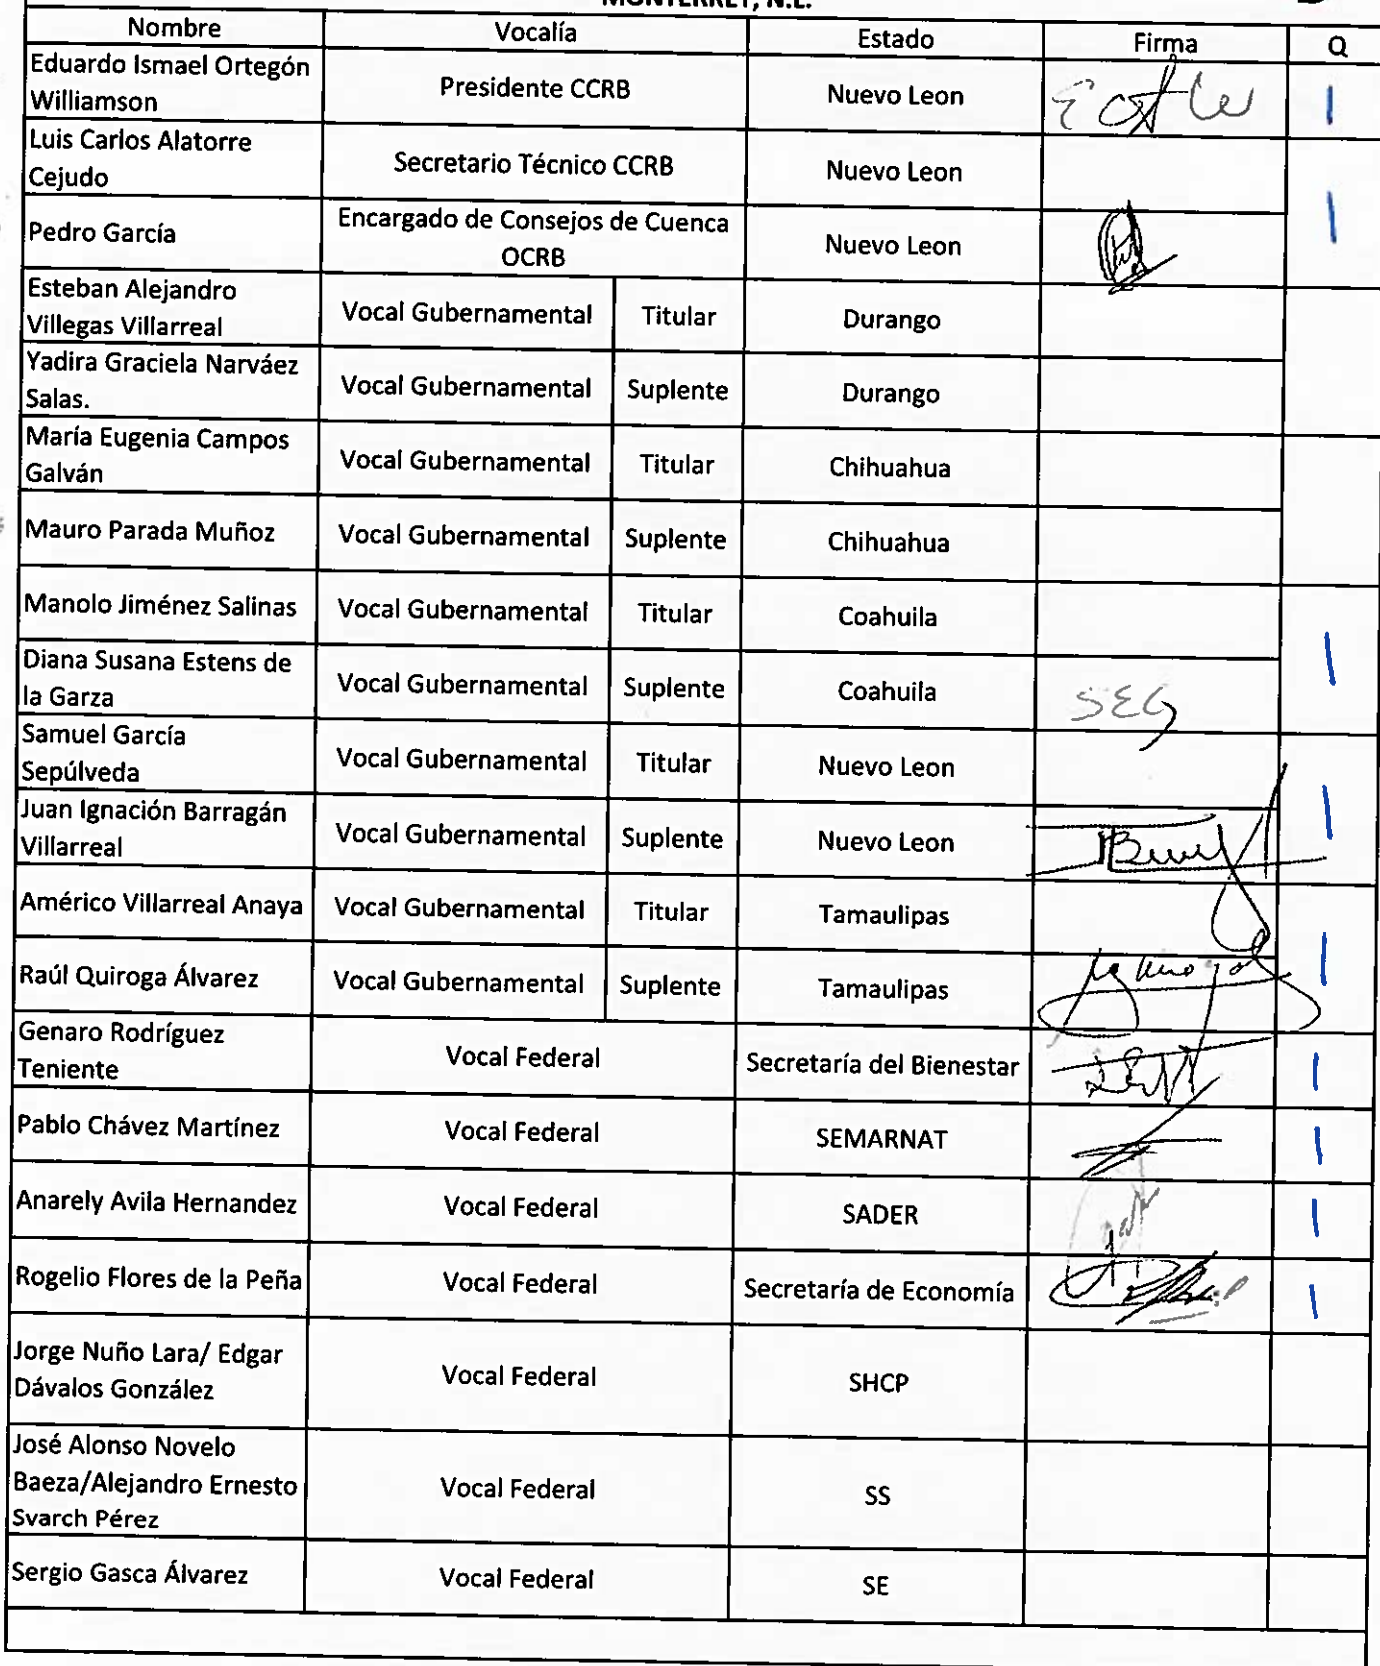 MONTERREY, N.L.
Nombre Vocalía Estado Firma Q
Eduardo Ismael Ortegón
Williamson
Presidente CCRB Nuevo Leon |
Luis Carlos Alatorre
Cejudo
Secretario Técnico CCRB Nuevo Leon |
Pedro García
Encargado de Consejos de Cuenca
OCRB
Nuevo Leon
Esteban Alejandro
Villegas Villarreal
Vocal Gubernamental Titular Durango
Yadira Graciela Narváez
Salas.
Vocal Gubernamental Suplente Durango
María Eugenia Campos
Galván
Vocal Gubernamental Titular Chihuahua
Mauro Parada Muñoz Vocal Gubernamental Suplente Chihuahua
Manolo Jiménez Salinas Vocal Gubernamental Titular Coahuila |
Diana Susana Estens de
la Garza
Vocal Gubernamental Suplente Coahuila SEG
Samuel García
Sepúlveda
Vocal Gubernamental Titular Nuevo Leon |
Juan Ignación Barragán
Villarreal
Vocal Gubernamental Suplente Nuevo Leon
Américo Villarreal Anaya Vocal Gubernamental Titular Tamaulipas |
Raúl Quiroga Álvarez Vocal Gubernamental Suplente Tamaulipas
Genaro Rodríguez
Teniente
Vocal Federal Secretaría del Bienestar |
Pablo Chávez Martínez Vocal Federal SEMARNAT |
Anarely Avila Hernandez Vocal Federal SADER |
Rogelio Flores de la Peña Vocal Federal Secretaría de Economía |
Jorge Nuño Lara/ Edgar
Dávalos González
Vocal Federal SHCP
José Alonso Novelo
Baeza/Alejandro Ernesto
Svarch Pérez
Vocal Federal SS
Sergio Gasca Álvarez Vocal Federal SE